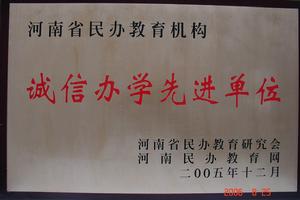 河南省民办教育机构
诚信办学先进单位
河南省民办教育研究会
河南民办教育网
二00五年十二月
2006 8 25